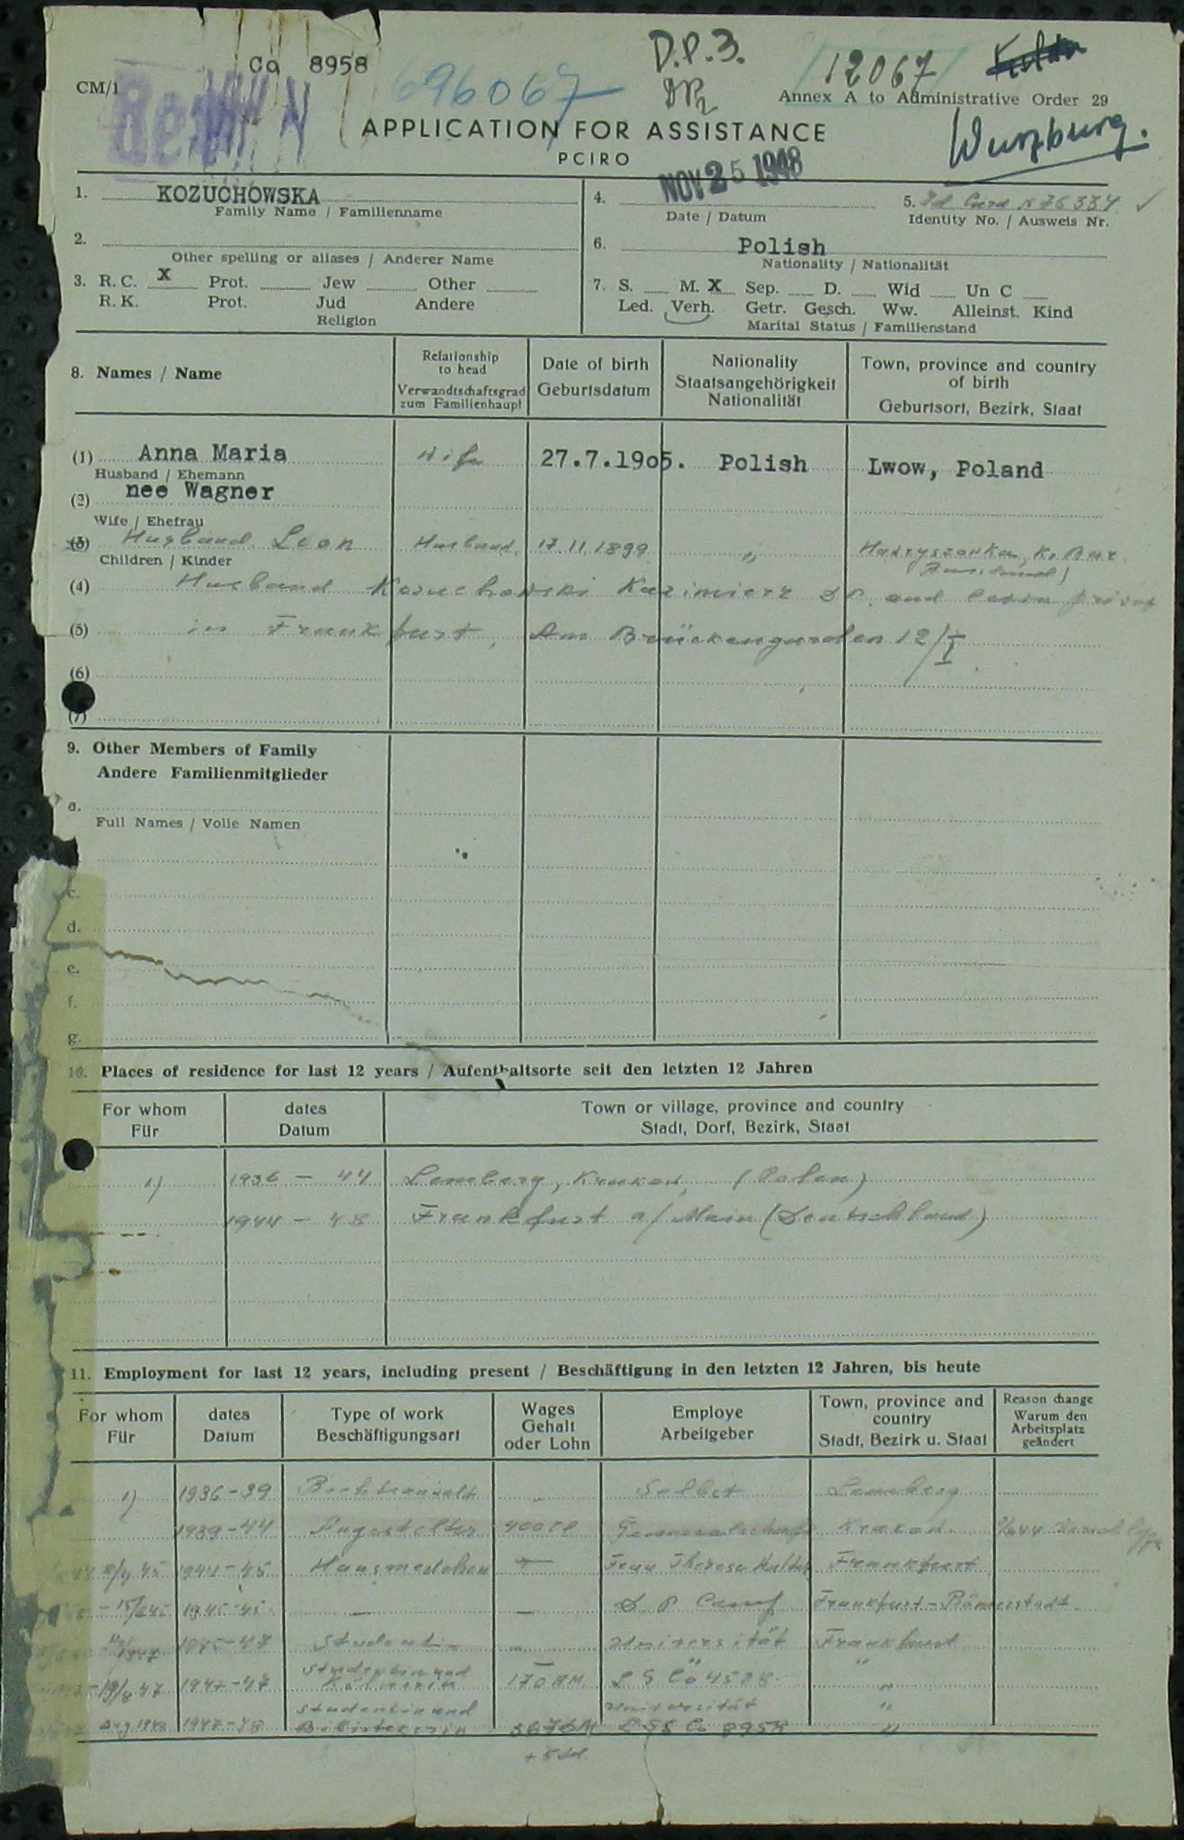 Co 8958
D.P.3.
12067
CM/1
696067
DP2
Annex A to Administrative Order 29
APPLICATION FOR ASSISTANCE
Wurzburg.
PCIRO
NOV 25 1948
1. KOZUCHOWSKA
Family Name / Familienname
4.
Date / Datum
5. Id Card N
Identity No. / Ausweis Nr.
2.
Other spelling or aliases / Anderer Name
6. Polish
Nationality / Nationalität
3. R. C. X Prot. Jew Other
R. K. Prot. Jud Andere
Religion
7. S. M. X Sep. D. Wid Un C
Led. Verh. Getr. Gesch. Ww. Alleinst. Kind
Marital Status / Familienstand
8. Names / Name
Relationship to head
Verwandtschaftsgrad zum Familienhaupt
Date of birth
Geburtsdatum
Nationality
Staatsangehörigkeit
Nationalität
Town, province and country of birth
Geburtsort, Bezirk, Staat
(1) Anna Maria Wife 27.7.1905. Polish Lwow, Poland
Husband / Ehemann
(2) nee Wagner
Wife / Ehefrau
(3) Husband Leon Husband. 17.11.1899 "
Children / Kinder
(4) Husband Kozuchowski Kazimierz DP. and
(5) in Frankfurt, Am Brückengarden 12/I
(6)
(7)
9. Other Members of Family
Andere Familienmitglieder
a.
Full Names / Volle Namen
c.
d.
e.
f.
g.
10. Places of residence for last 12 years / Aufenthaltsorte seit den letzten 12 Jahren
For whom
Für
dates
Datum
Town or village, province and country
Stadt, Dorf, Bezirk, Staat
1) 1936 - 44 Lemberg, Krakau, (Polen)
1944 - 48 Frankfurt a/Main (Deutschland)
11. Employment for last 12 years, including present / Beschäftigung in den letzten 12 Jahren, bis heute
For whom
Für
dates
Datum
Type of work
Beschäftigungsart
Wages
Gehalt
oder Lohn
Employe
Arbeitgeber
Town, province and country
Stadt, Bezirk u. Staat
Reason change
Warum den Arbeitsplatz geändert
1) 1936-39 Rechtsanwalt - Selbst Lemberg
1939-44 Angestellter Krakau
1944-45 Hausmädchen - Frau Therese Frankfurt
1945-45 - - D P Camp Frankfurt-Römerstadt
1945-47 Studentin - Universität Frankfurt
1947-47 Studentin und 170 RM "
1947-48 Studentin und Universität "
Co 8958 "